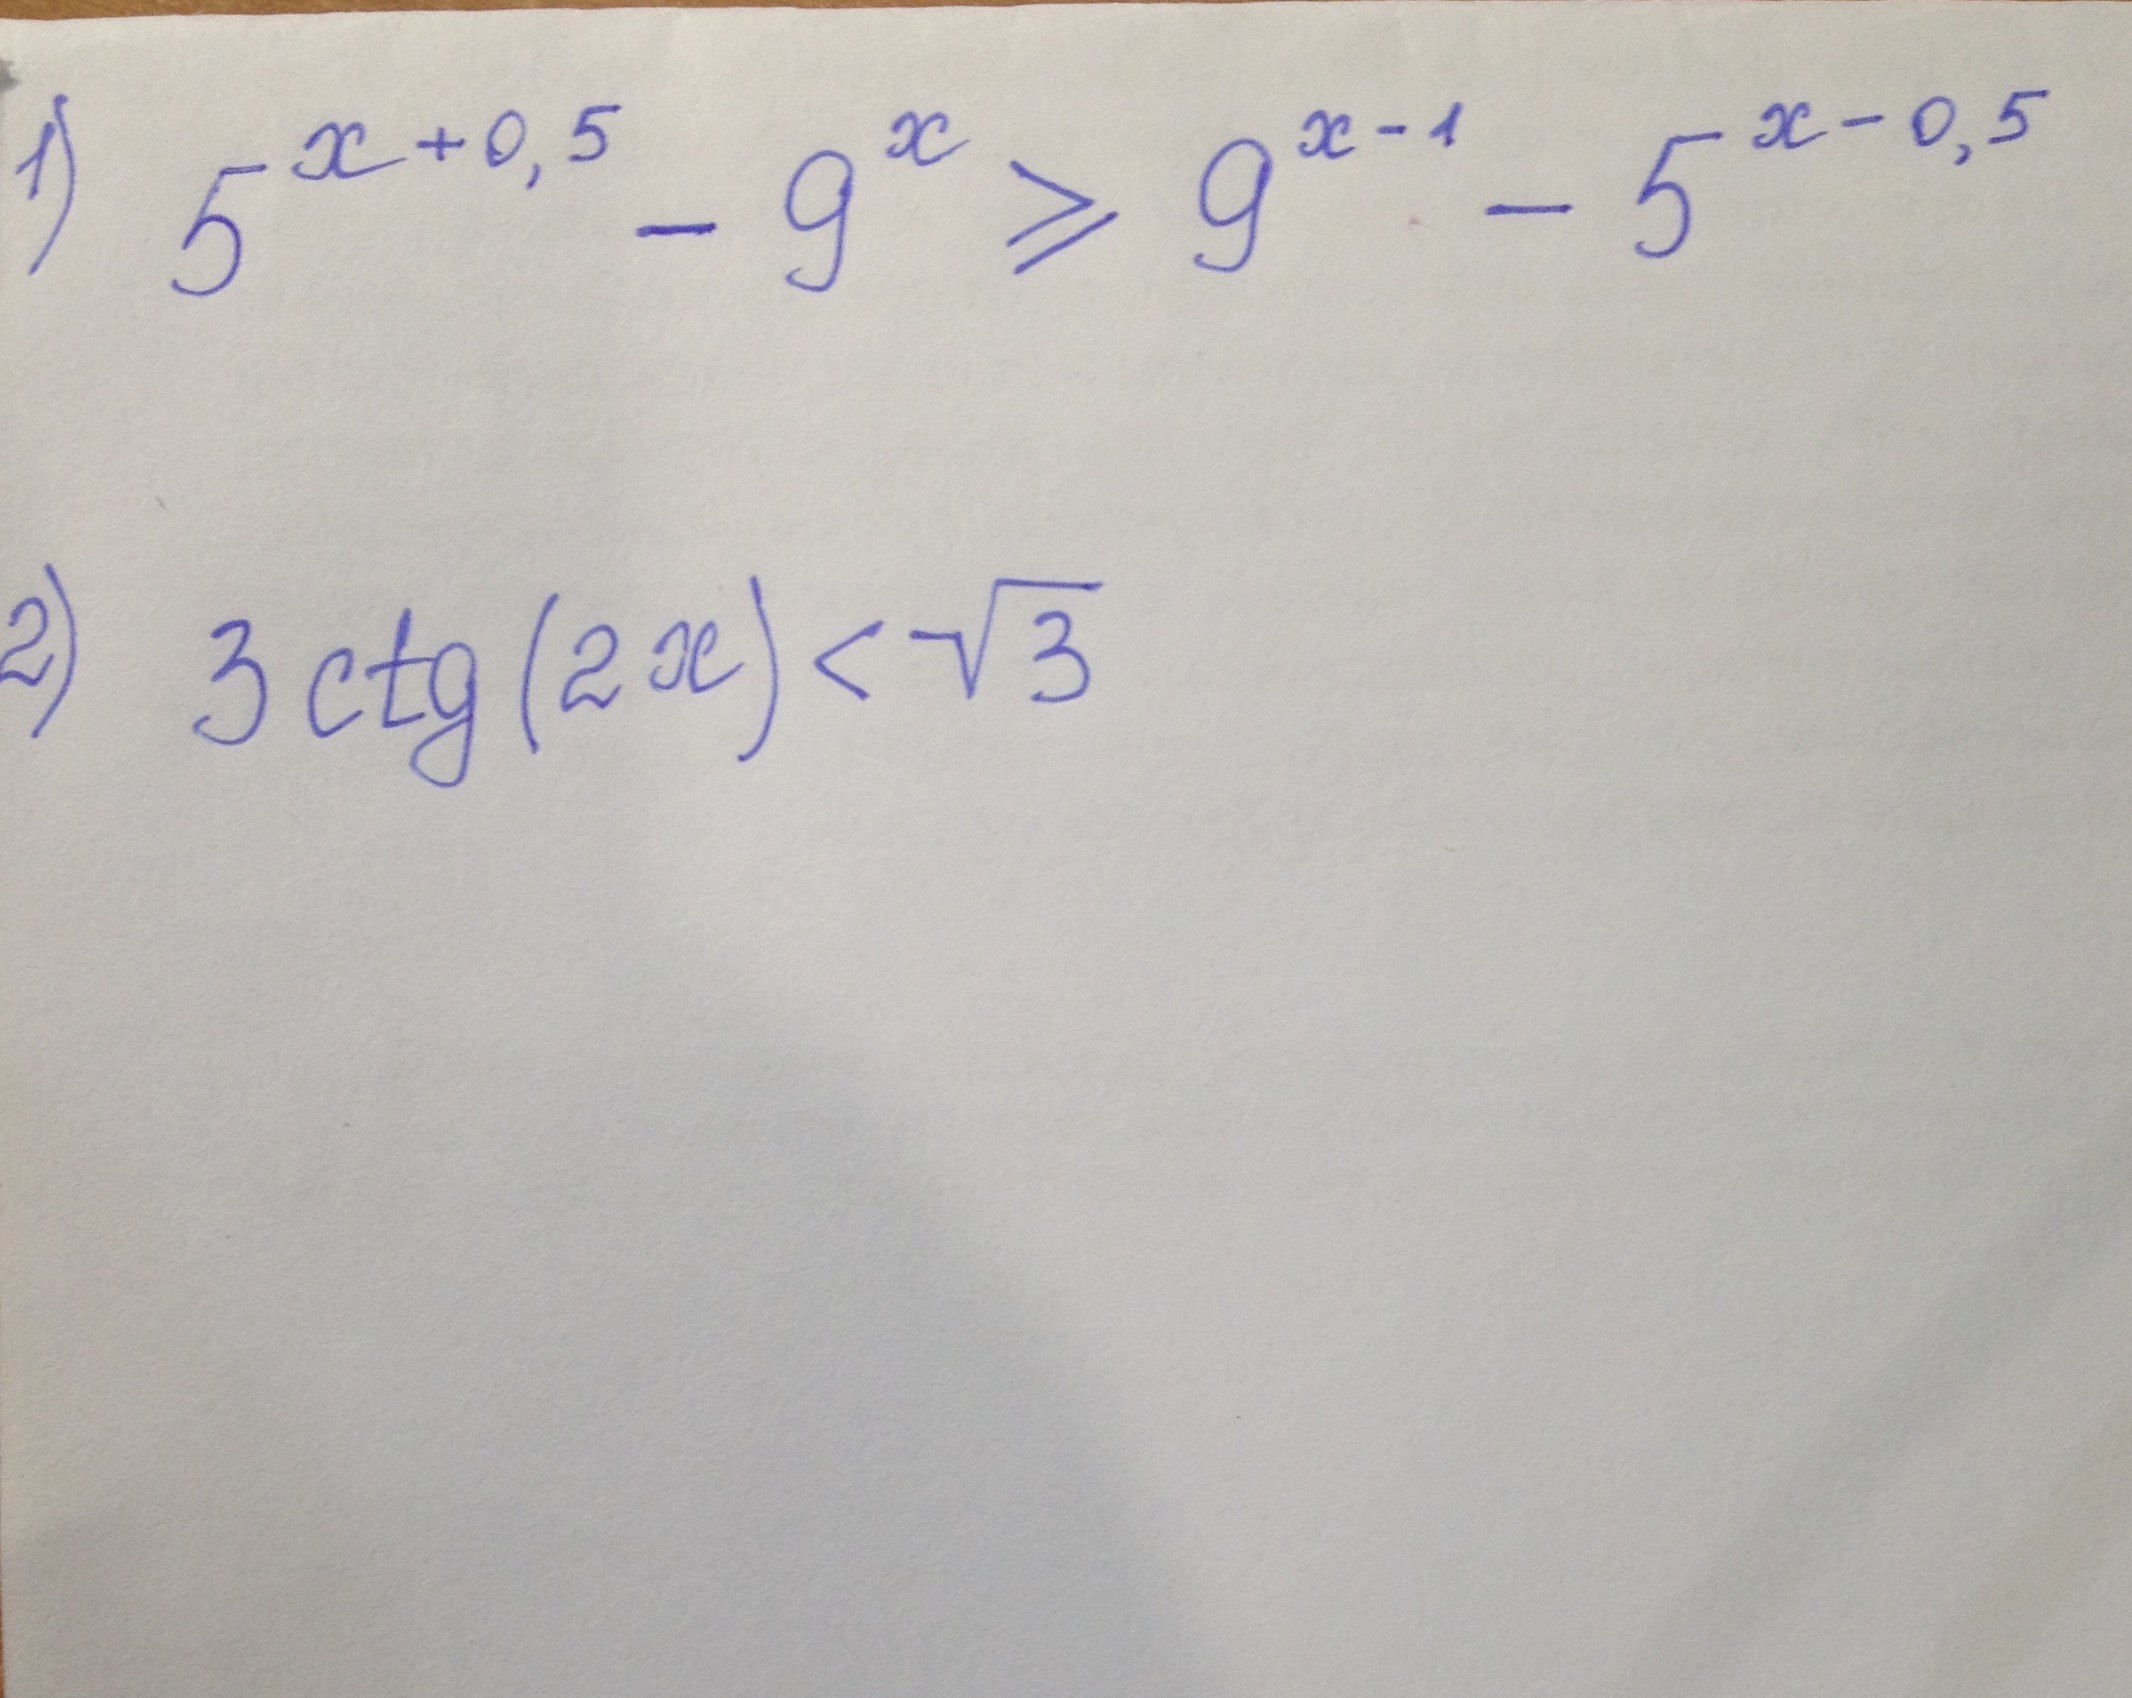 1) 5^{x+0,5} - 9^x ⩾ 9^{x-1} - 5^{x-0,5}
2) 3 ctg(2x) < √3